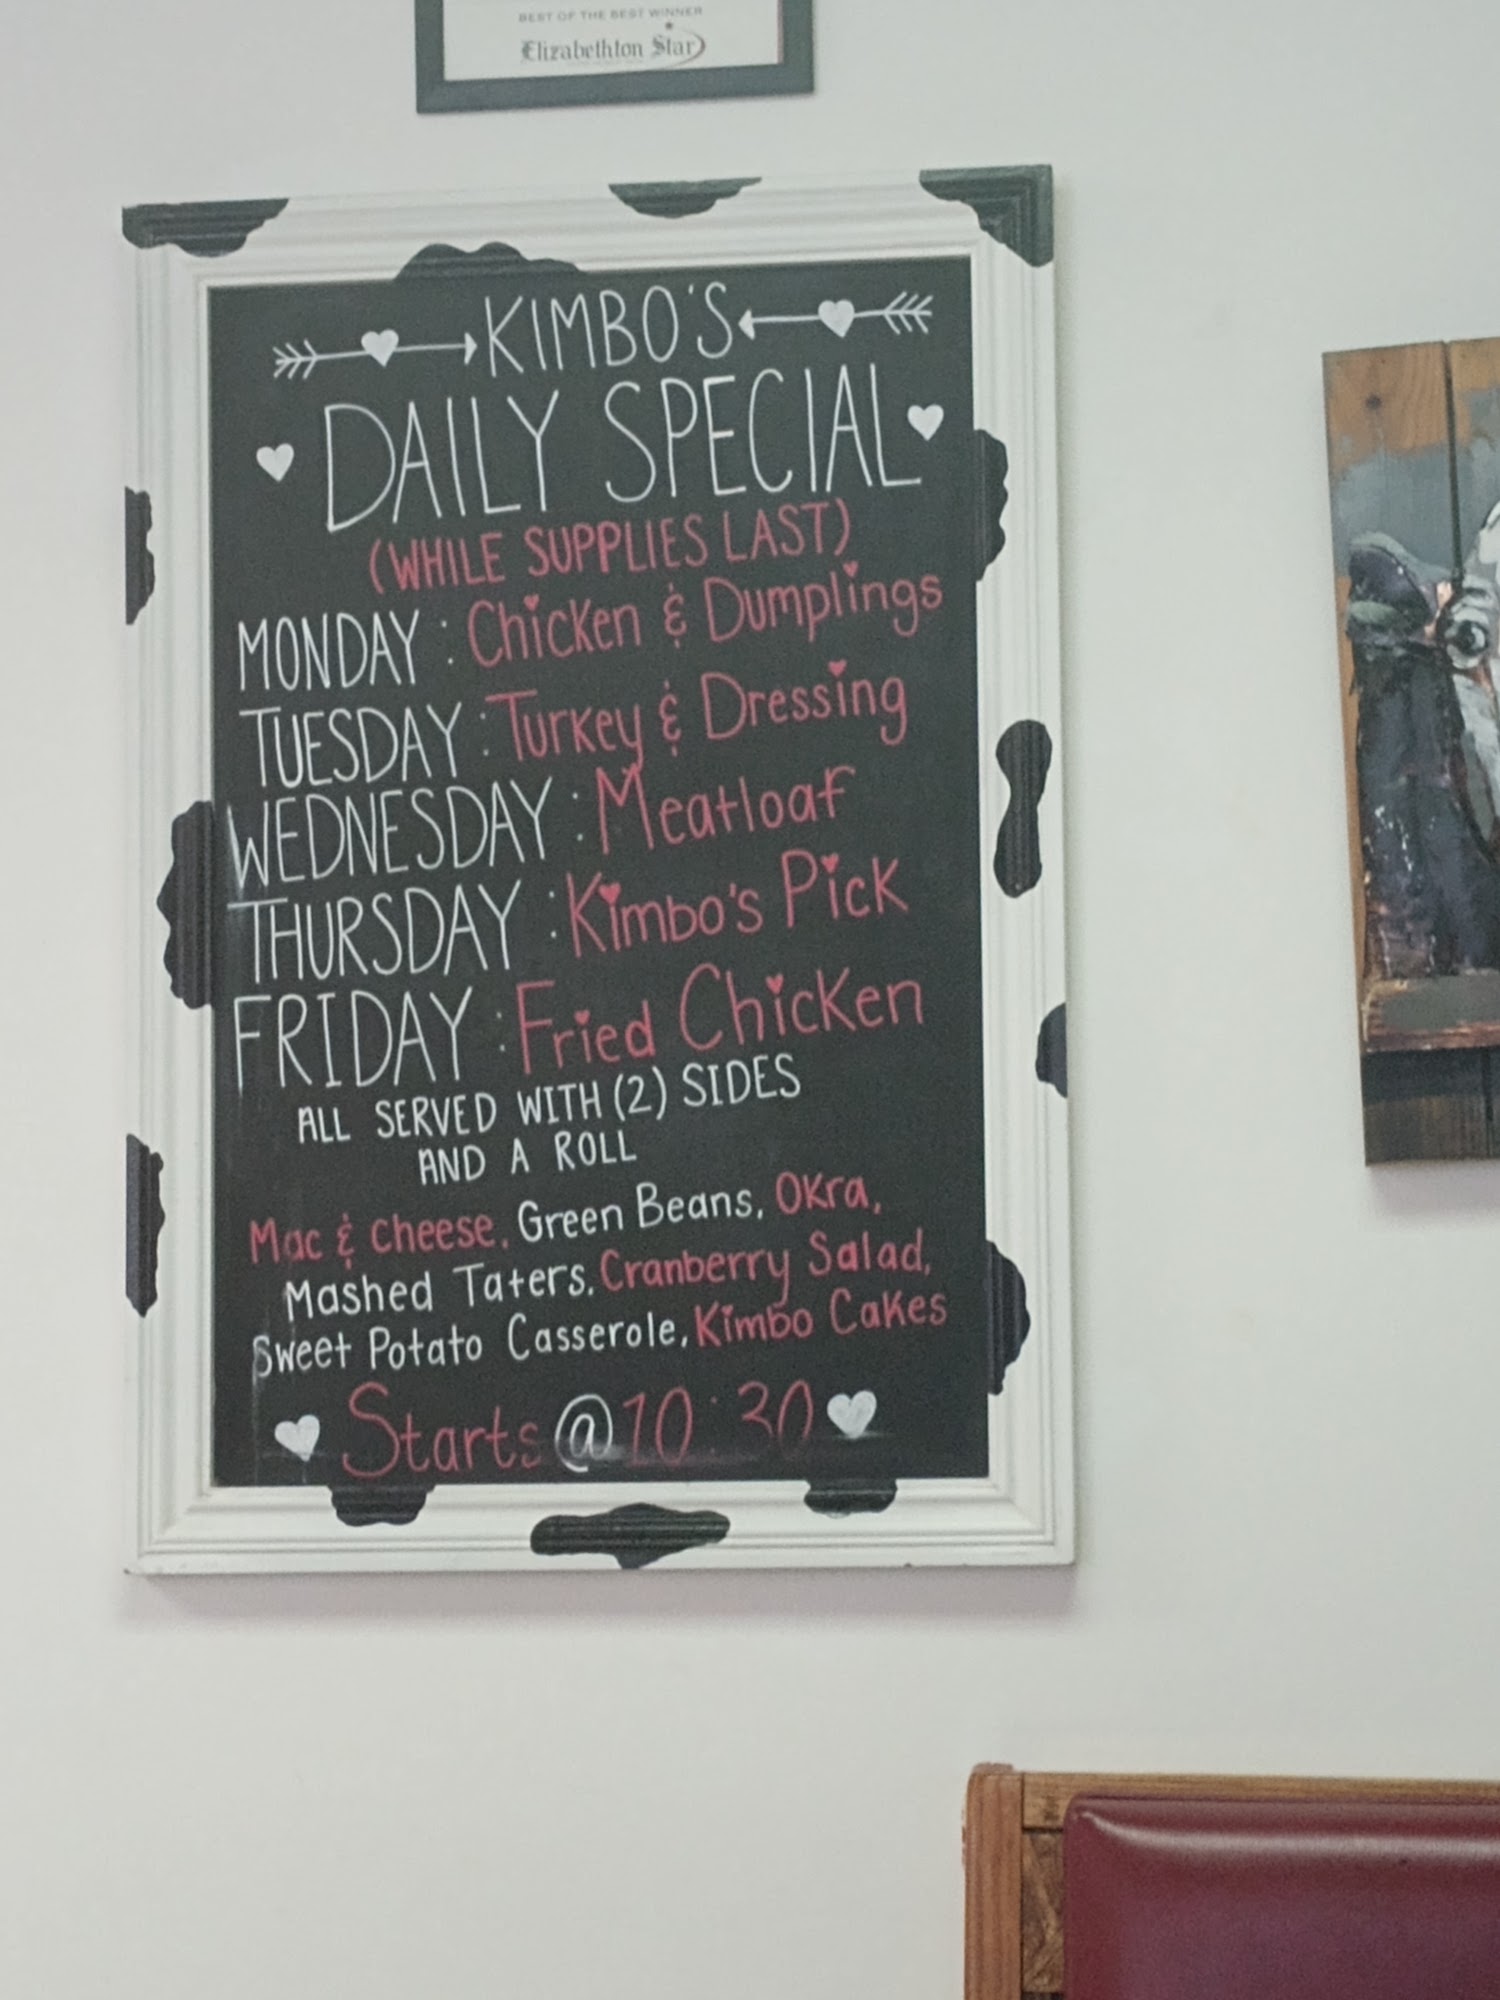 BEST OF THE BEST WINNER
Elizabethton Star
KIMBO'S
DAILY SPECIAL
(WHILE SUPPLIES LAST)
MONDAY : Chicken & Dumplings
TUESDAY : Turkey & Dressing
WEDNESDAY : Meatloaf
THURSDAY : Kimbo's Pick
FRIDAY : Fried Chicken
ALL SERVED WITH (2) SIDES
AND A ROLL
Mac & cheese, Green Beans, Okra,
Mashed Taters, Cranberry Salad,
Sweet Potato Casserole, Kimbo Cakes
Starts @ 10:30